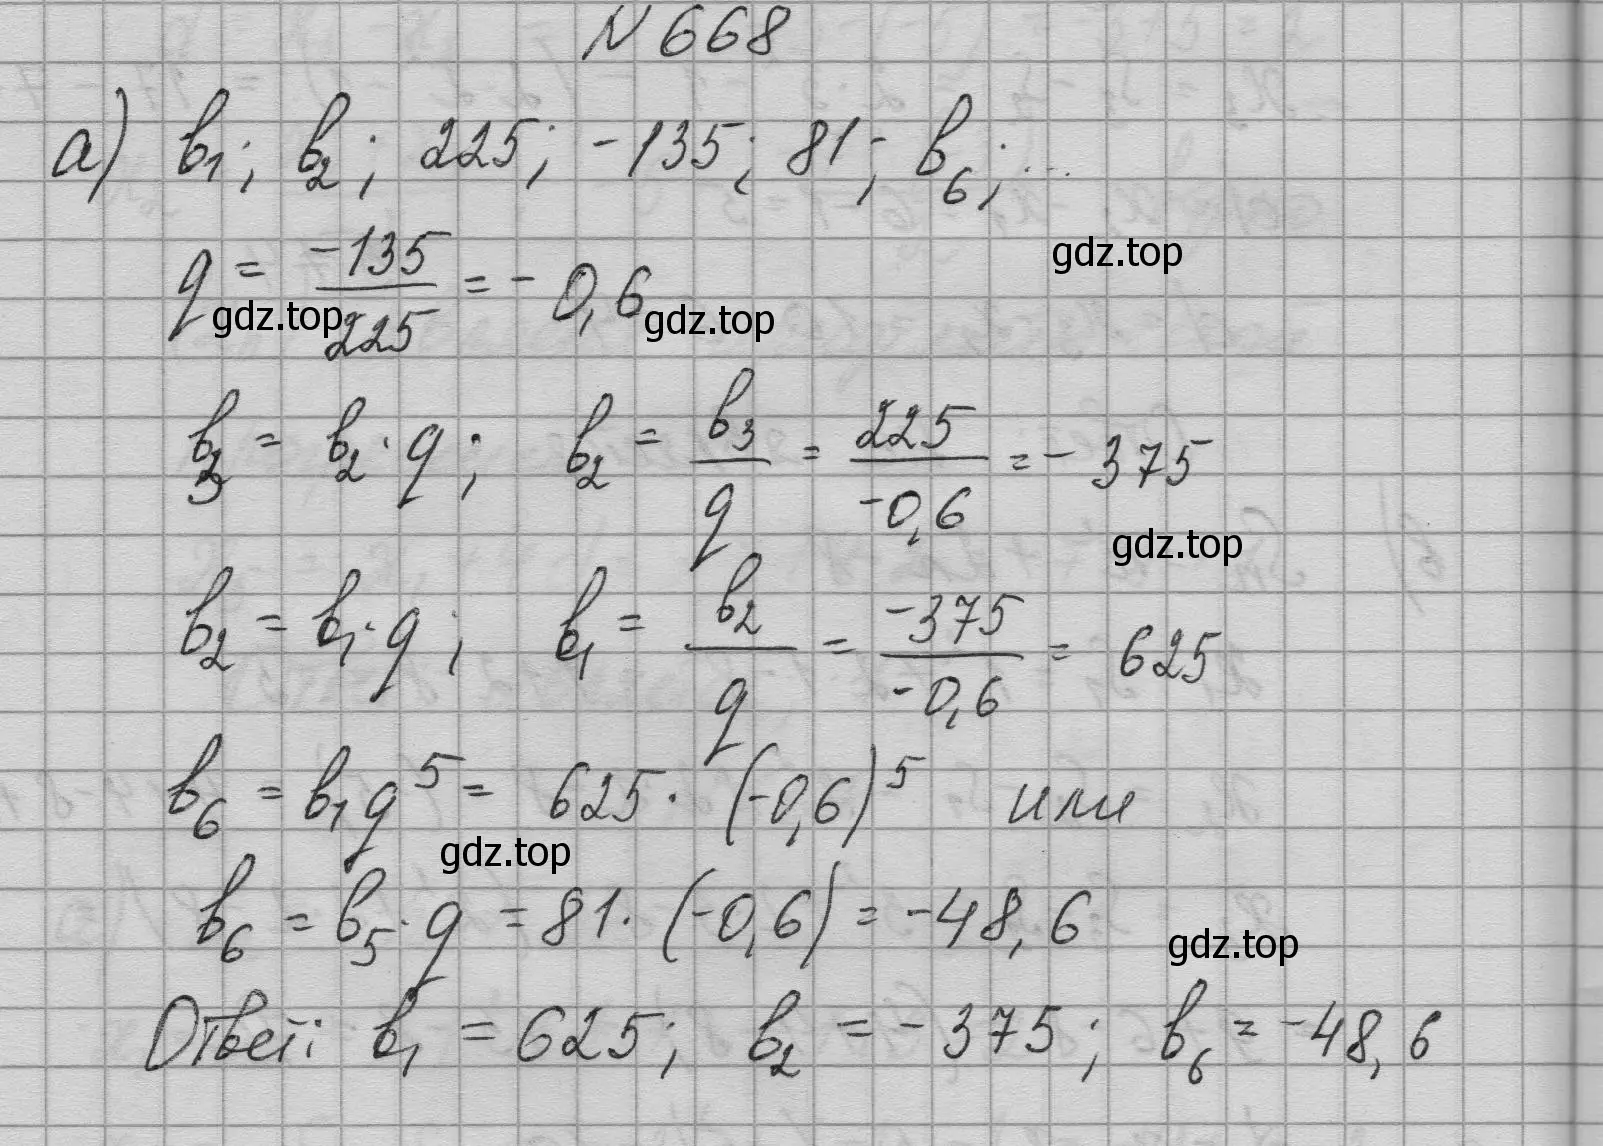 N 668
а) b₁; b₂; 225; -135; 81; b₆; ...
gdz.top
q = -135/225 = -0,6
gdz.top
gdz.top
b₃ = b₂ · q; b₂ = b₃/q = 225/-0,6 = -375
gdz.top
b₂ = b₁ · q; b₁ = b₂/q = -375/-0,6 = 625
b₆ = b₁q⁵ = 625 · (-0,6)⁵ или
gdz.top
b₆ = b₅ · q = 81 · (-0,6) = -48,6
gdz.top
Ответ: b₁ = 625; b₂ = -375; b₆ = -48,6